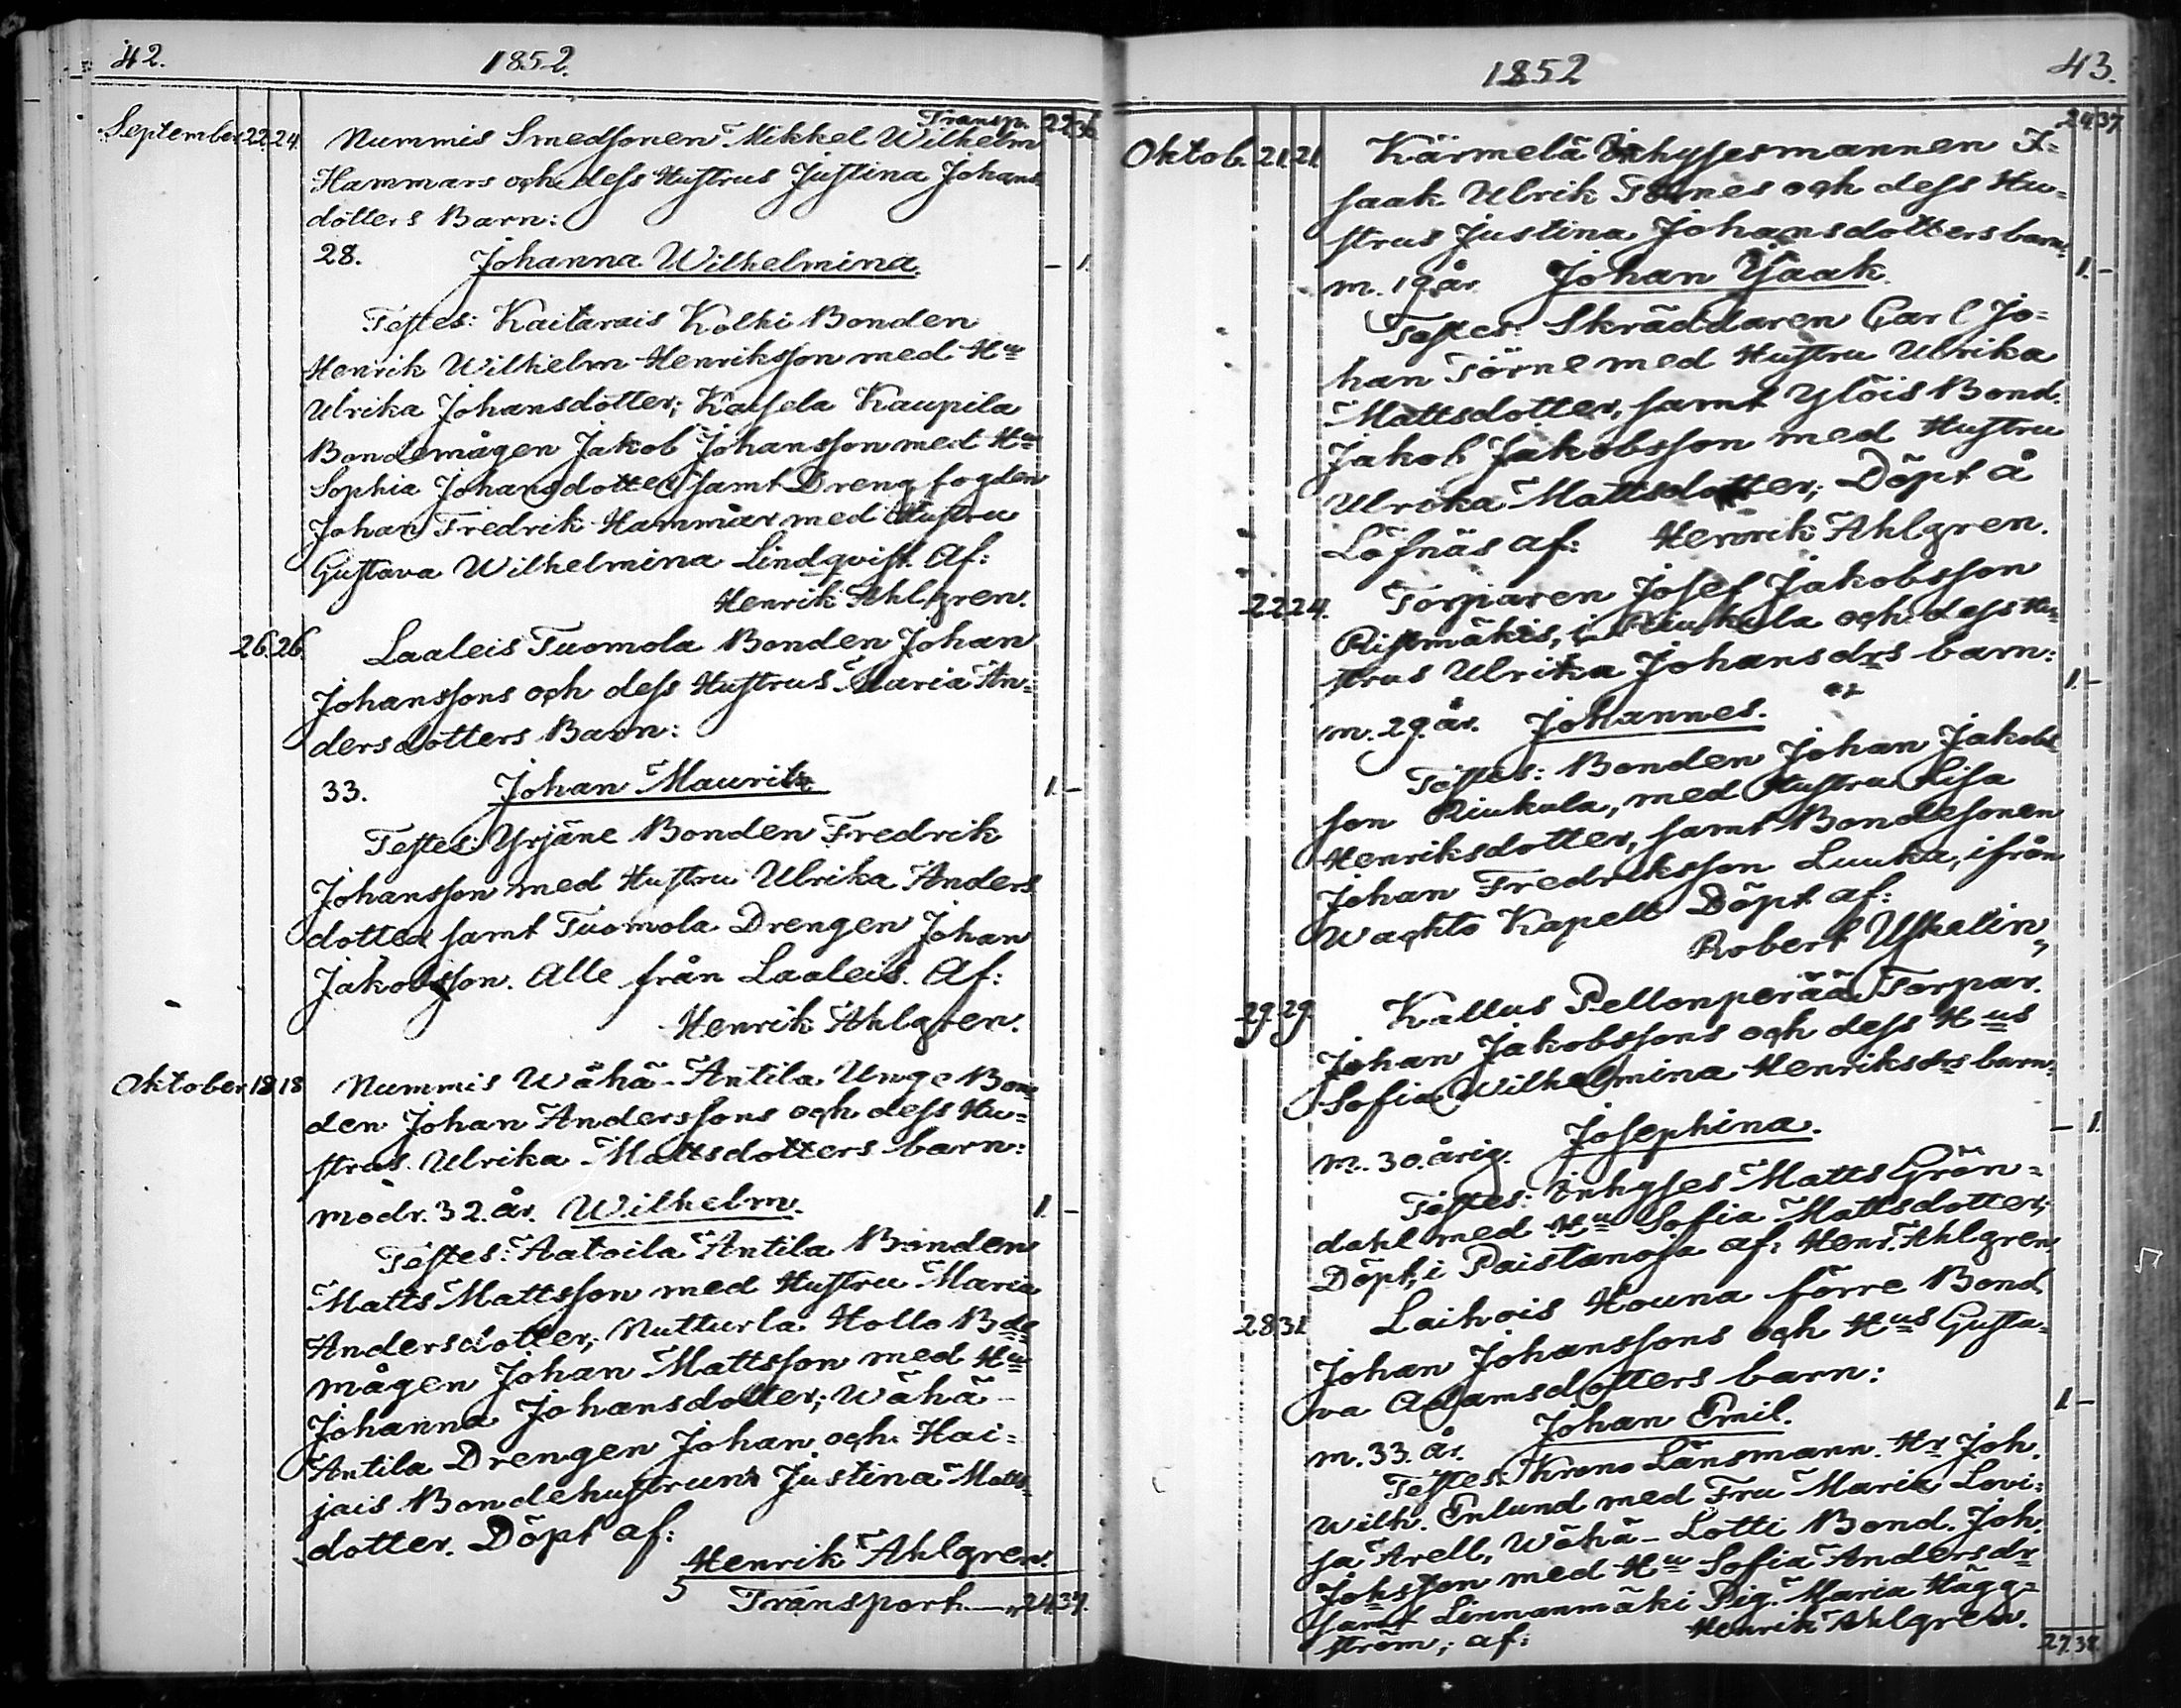 42. 1852.
Transp. 22. 36.
September 22. 24. Nummis Smedsonen Mikkel Wilhelm
Hammars och dess Hustrus Justina Johans=
dotters Barn:
28. Johanna Wilhelmina. – 1.
Testes: Kaitarais Kolki Bonden
Henrik Wilhelm Henriksson med Hu
Ulrika Johansdotter; Kaisela Kaupila
Bondemågen Jakob Johansson med Hu
Sophia Johansdotter samt Drengfogden
Johan Fredrik Hammar med Hustru
Gustava Wilhelmina Lindqvist. Af:
Henrik Ahlgren.
26. 26. Laaleis Tuomola Bonden Johan
Johanssons och dess Hustrus Maria An=
dersdotters Barn:
33. Johan Mauritz 1. –
Testes: Yrjäne Bonden Fredrik
Johansson med Hustru Ulrika Anders
dotter samt Tuomola Drengen Johan
Jakobsson. Alle från Laaleis. Af:
Henrik Ahlgren.
Oktober 18 18 Nummis Wähä-Antila Unge Bon=
den Johan Anderssons och dess Hu=
strus Ulrika Mattsdotters barn:
modr. 32. år. Wilhelm. 1. –
Testes: Aatoila Antila Bonden
Matts Mattsson med Hustru Maria
Andersdotter; Nutturla Hollo Bde
mågen Johan Mattsson med Hu
Johanna Johansdotter; Wähä-
Antila Drengen Johan och Hai=
jais Bondehustrun Justina Matts
dotter. Döpt af:
Henrik Ahlgren.
5 Transport — 24. 37.
1852 43.
24 37
Oktob. 21. 21. Kärmelä Inhysesmannen I=
saak Ulrik Törnes och dess Hu=
strus Justina Johansdotters barn:
m. 19 år Johan Isaak. 1. –
Testes: Skräddaren Carl Jo=
han Törne med Hustru Ulrika
Mattsdotter, samt Ylöis Bond.
Jakob Jakobsson med Hustru
Ulrika Mattsdotter; Döpt å
Löfnäs af: Henrik Ahlgren.
22 24. Torparen Josef Jakobsson
Ristmäkis, i Riukula och dess Hu=
strus Ulrika Johansdrs barn:
m. 29. år. Johannes. 1. –
Testes: Bonden Johan Jakobs
son Riukula, med Hustru Lisa
Henriksdotter, samt Bondesonen
Johan Fredriksson Luuka, ifrån
Wachto Kapell Döpt af:
Robert Uskelin,
29. 29. Kallus Pellonperää Torpar.
Johan Jakobssons och dess Hus
Sofia Wilhelmina Henriksdrs barn:
m. 30. årig. Josephina. – 1.
Testes: Inhyses Matts Grön=
dahl med Hu Sofia Mattsdotter;
Döpt, i Paistanoja af: Henr. Ahlgren.
28 31 Laihois Houna förre Bond
Johan Johanssons och Hus Gusta=
va Adamsdotters barn:
m. 33. år. Johan Emil. 1. –
Testes: Krono Länsmann. Hr Joh.
Wilh. Enlund med Fru Maria Lovi=
sa Arell, Wähä-Lotti Bond. Joh.
Johsson med Hu Sofia Andersdr
samt Linnanmäki Pig. Maria Hägg=
ström; af: Henrik Ahlgren.
27. 38